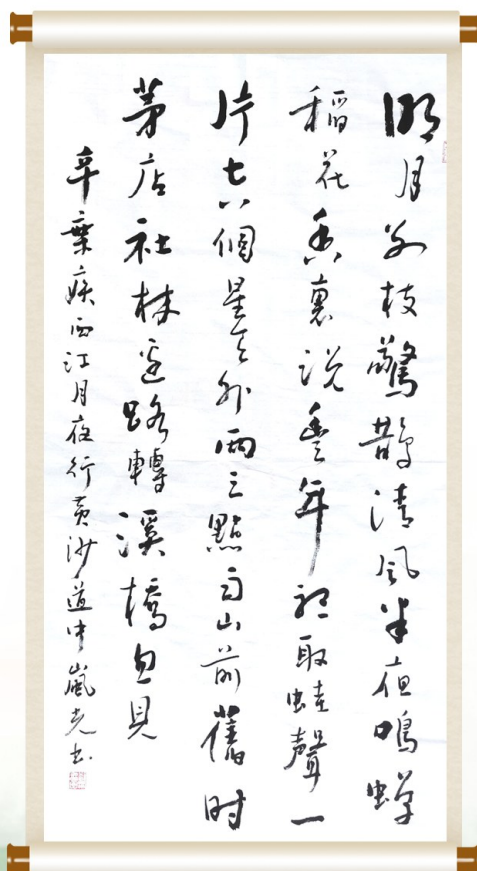 明月别枝驚鵲清風半夜鳴蟬
稻花香裏説豐年聽取蛙聲一
片七八個星天外兩三點雨山前舊时
茅店社林邊路轉溪橋忽見
辛棄疾西江月夜行黄沙道中嵐光书